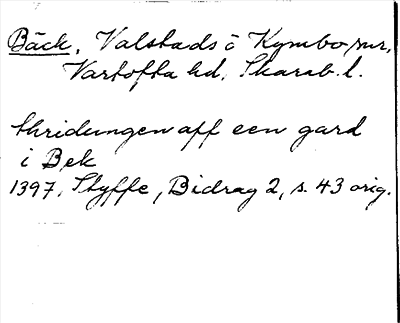 Bäck, Valstads o Kymbo snr,
Vartofta hd, Skarab. l.
thridungen aff een gard
i Bek
1397, Styffe, Bidrag 2, s. 43 orig.